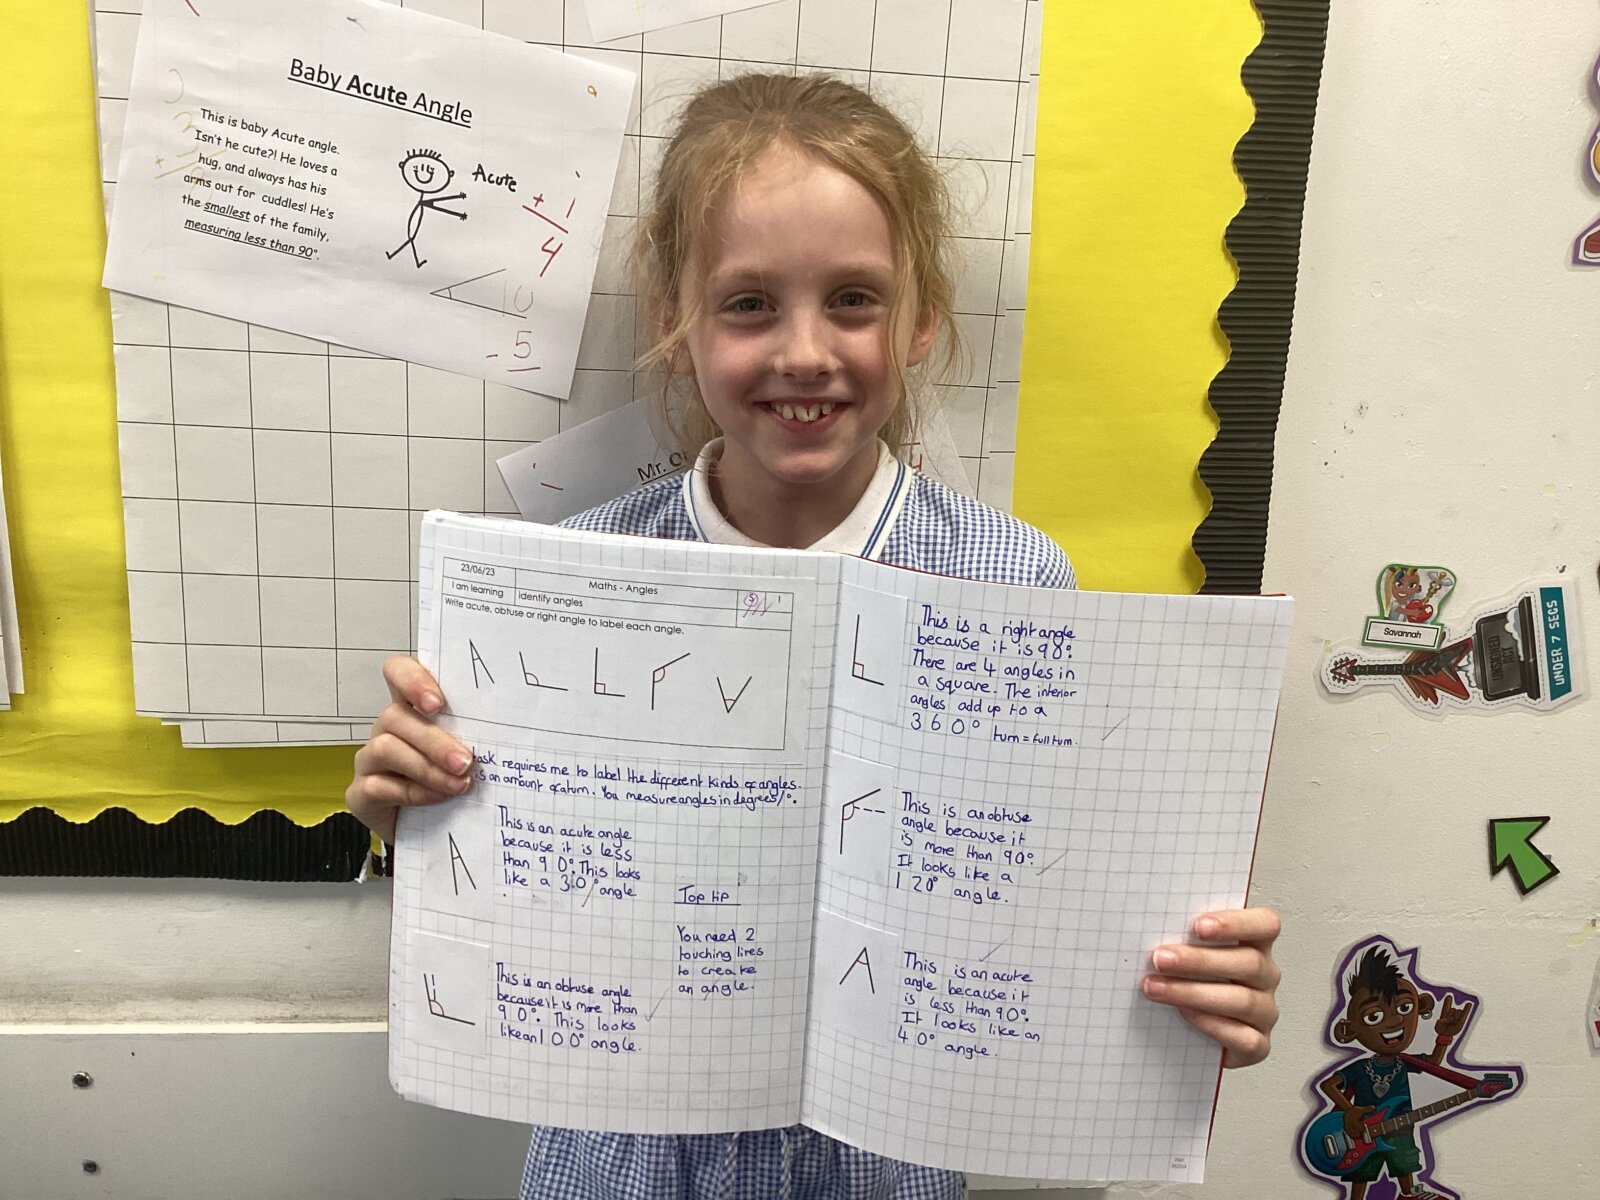 Baby Acute Angle
This is baby Acute angle.
Isn't he cute?! He loves a
hug, and always has his
arms out for cuddles! He's
the smallest of the family,
measuring less than 90°.
Acute
+ 1
4
10
- 5
Mr. O
23/06/23
Maths - Angles
I am learning
Identify angles
Write acute, obtuse or right angle to label each angle.
task requires me to label the different kinds of angles.
is an amount of a turn. You measure angles in degrees/°.
This is an acute angle
because it is less
than 90°. This looks
like a 30° angle
Top tip
You need 2
touching lines
to create
an angle.
This is an obtuse angle
because it is more than
90°. This looks
like an 100° angle.
This is a right angle
because it is 90°.
There are 4 angles in
a square. The interior
angles add up to a
360° turn = full turn.
This is an obtuse
angle because it
is more than 90°.
It looks like a
120° angle.
This is an acute
angle because it
is less than 90°.
It looks like an
40° angle.
Savannah
UNSIGNED
ACT
UNDER 7 SECS